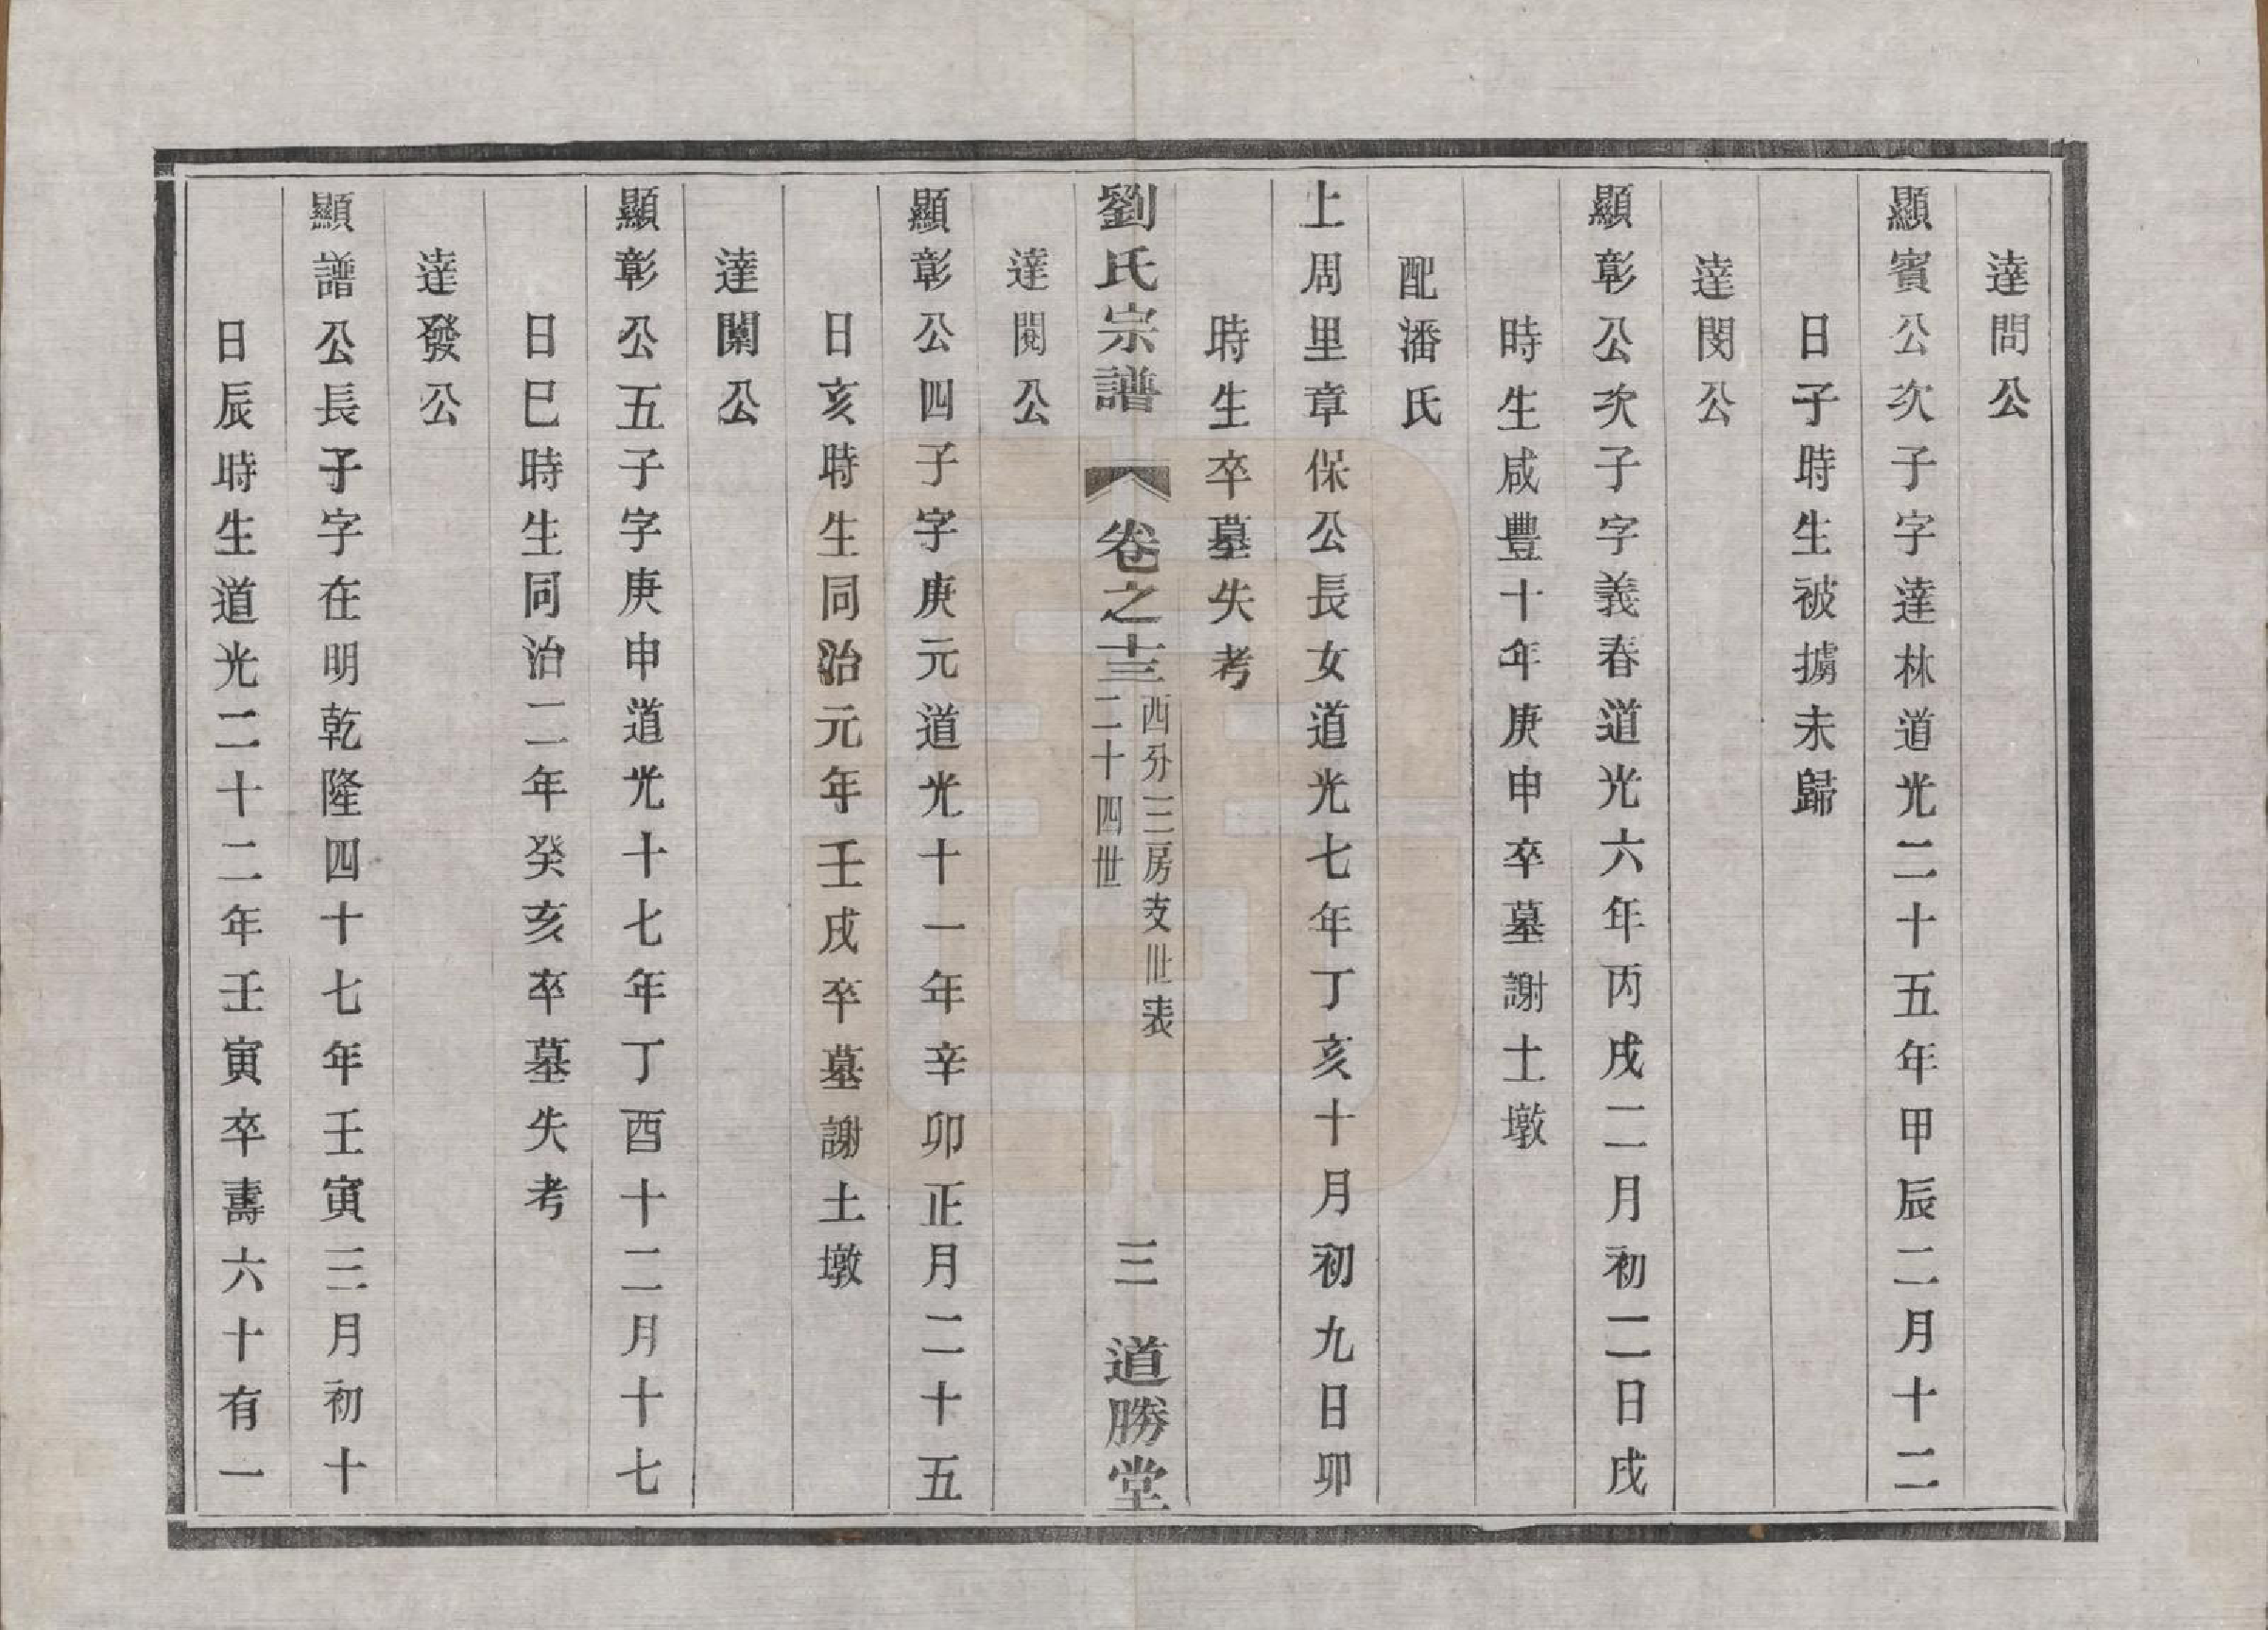 達問公
顯賓公次子字達林道光二十五年甲辰二月十二
日子時生被擄未歸
達閔公
顯彰公次子字義春道光六年丙戌二月初二日戌
時生咸豐十年庚申卒墓謝土墩
配潘氏
上周里章保公長女道光七年丁亥十月初九日卯
時生卒墓失考
劉氏宗譜
卷之十三
西分三房支世表
二十四世
三
道勝堂
達閱公
顯彰公四子字庚元道光十一年辛卯正月二十五
日亥時生同治元年壬戌卒墓謝土墩
達闌公
顯彰公五子字庚申道光十七年丁酉十二月十七
日巳時生同治二年癸亥卒墓失考
達發公
顯譜公長子字在明乾隆四十七年壬寅三月初十
日辰時生道光二十二年壬寅卒壽六十有一